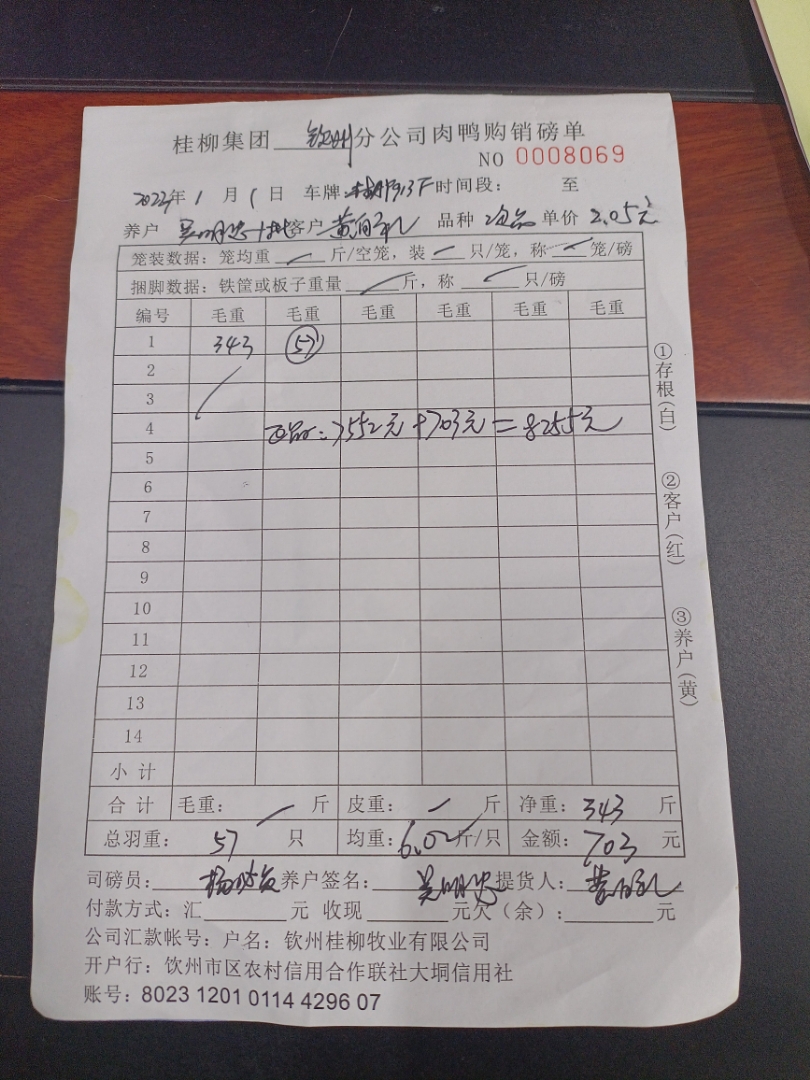 桂柳集团 钦州 分公司肉鸭购销磅单
NO 0008069
年 1 月 1 日 车牌: 时间段: 至
养户 吴明忠 客户 品种 次品 单价 2.05元
笼装数据: 笼均重 斤/空笼, 装 只/笼, 称 笼/磅
捆脚数据: 铁筐或板子重量 斤, 称 只/磅
编号 毛重 毛重 毛重 毛重 毛重 毛重
1 343 57
2
3
4 7552元+703元=8255元
5
6
7
8
9
10
11
12
13
14
小计
合计 毛重: 斤 皮重: 斤 净重: 343 斤
总羽重: 57 只 均重: 6.02 斤/只 金额: 703 元
司磅员: 养户签名: 吴明忠 提货人:
付款方式: 汇 元 收现 元欠(余): 元
公司汇款帐号: 户名: 钦州桂柳牧业有限公司
开户行: 钦州市区农村信用合作联社大垌信用社
账号: 8023 1201 0114 4296 07
①存根(白)
②客户(红)
③养户(黄)